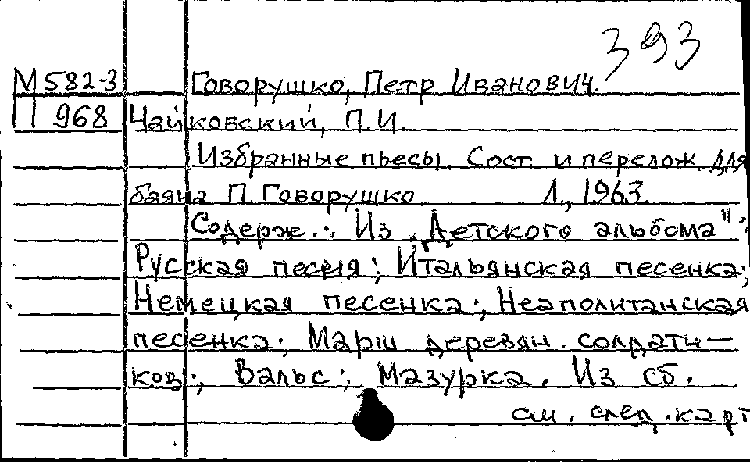 393
М582-3 Говорушко, Петр Иванович.
П 968 Чайковский, П.И.
Избранные пьесы. Сост. и перелож. для
баяна П. Говорушко Л., 1963.
Содерж.: Из „Детского альбома":
Русская песня; Итальянская песенка;
Немецкая песенка; Неаполитанская
песенка; Марш деревян. солдати-
ков; Вальс; Мазурка. Из сб.
см. след. карт